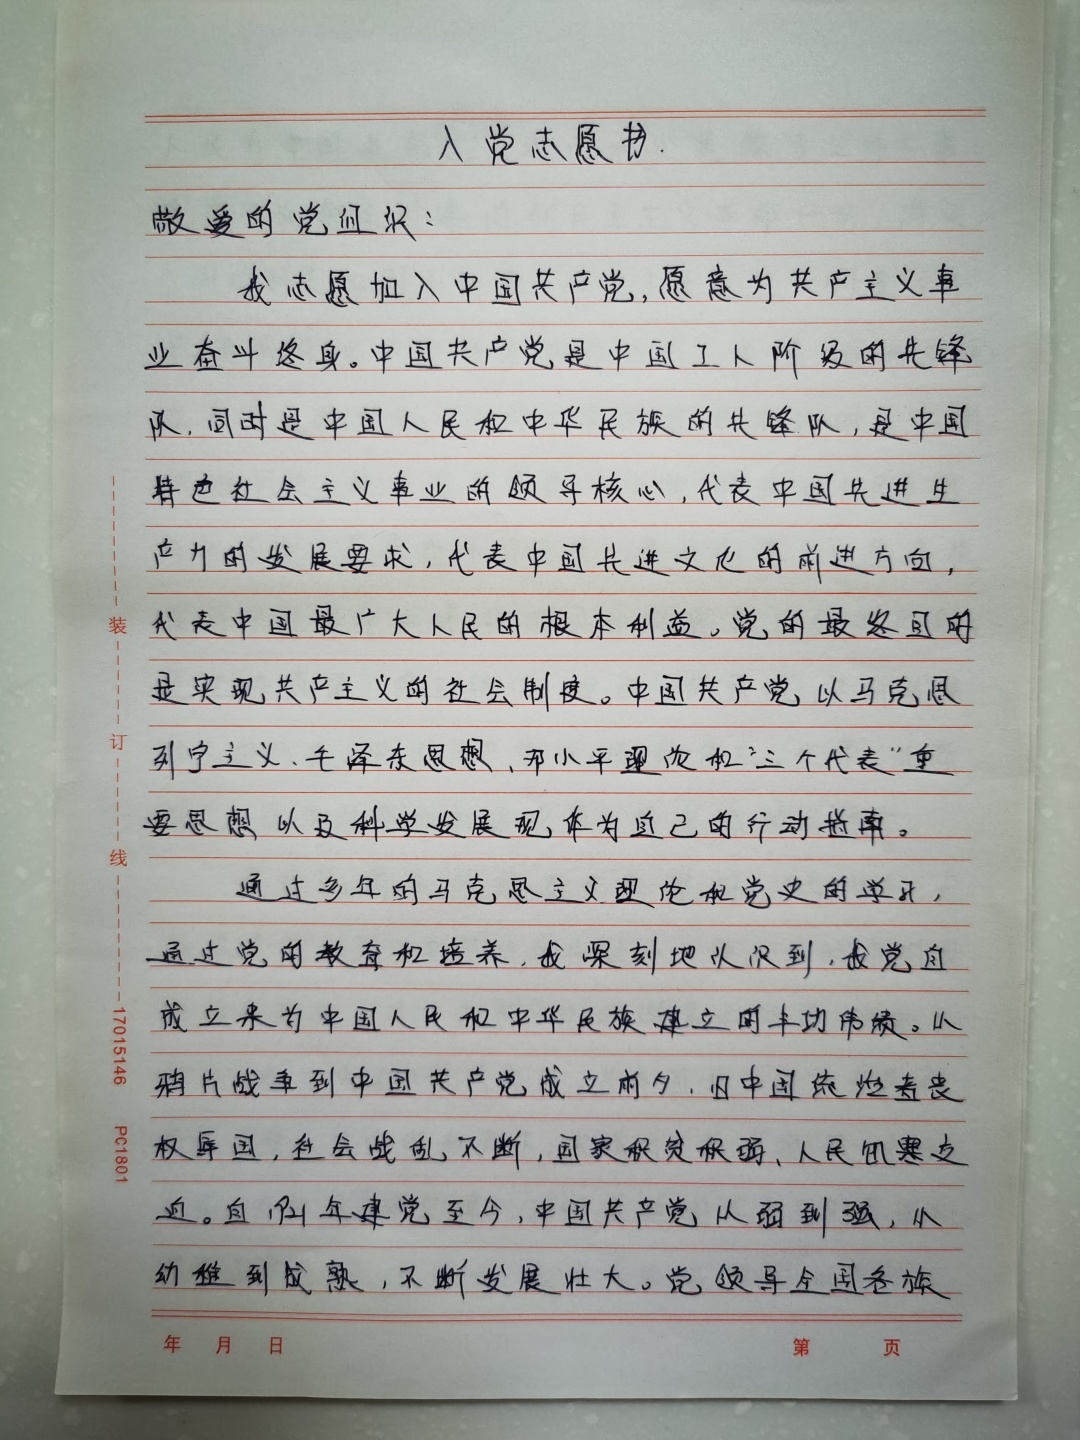 入党志愿书.
敬爱的党组织：
我志愿加入中国共产党，愿意为共产主义事
业奋斗终身。中国共产党是中国工人阶级的先锋
队，同时是中国人民和中华民族的先锋队，是中国
特色社会主义事业的领导核心，代表中国先进生
产力的发展要求，代表中国先进文化的前进方向，
代表中国最广大人民的根本利益。党的最终目的
是实现共产主义的社会制度。中国共产党以马克思
列宁主义、毛泽东思想、邓小平理论和“三个代表”重
要思想以及科学发展观作为自己的行动指南。
通过多年的马克思主义理论和党史的学习，
通过党的教育和培养，我深刻地认识到，我党自
成立来为中国人民和中华民族建立的丰功伟绩。从
鸦片战争到中国共产党成立前夕，旧中国统治者丧
权辱国，社会战乱不断，国家积贫积弱、人民饥寒交
迫。自1921年建党至今，中国共产党从弱到强，从
幼稚到成熟，不断发展壮大。党领导全国各族
年 月 日 第 页
装
订
线
17015146 PC1801